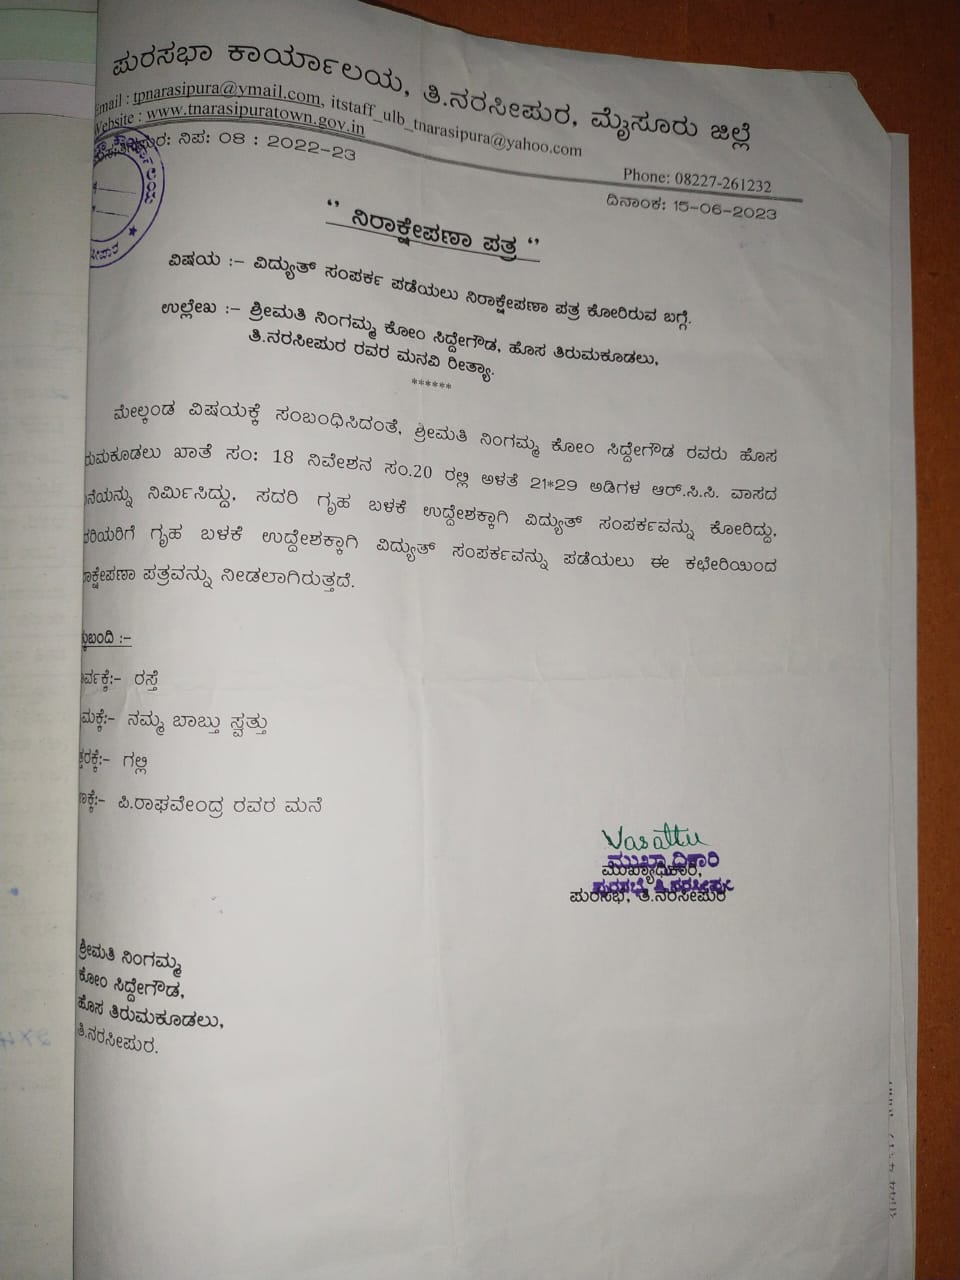 ಪುರಸಭಾ ಕಾರ್ಯಾಲಯ, ತಿ.ನರಸೀಪುರ, ಮೈಸೂರು ಜಿಲ್ಲೆ
Email : tpnarasipura@ymail.com, itstaff_ulb_tnarasipura@yahoo.com
Website : www.tnarasipuratown.gov.in
Phone: 08227-261232
ನಿಪ: 08 : 2022-23
ದಿನಾಂಕ: 15-06-2023
‘‘ ನಿರಾಕ್ಷೇಪಣಾ ಪತ್ರ ‘‘
ವಿಷಯ :- ವಿದ್ಯುತ್ ಸಂಪರ್ಕ ಪಡೆಯಲು ನಿರಾಕ್ಷೇಪಣಾ ಪತ್ರ ಕೋರಿರುವ ಬಗ್ಗೆ.
ಉಲ್ಲೇಖ :- ಶ್ರೀಮತಿ ನಿಂಗಮ್ಮ ಕೋಂ ಸಿದ್ದೇಗೌಡ, ಹೊಸ ತಿರುಮಕೂಡಲು,
ತಿ.ನರಸೀಪುರ ರವರ ಮನವಿ ರೀತ್ಯಾ.
******
ಮೇಲ್ಕಂಡ ವಿಷಯಕ್ಕೆ ಸಂಬಂಧಿಸಿದಂತೆ, ಶ್ರೀಮತಿ ನಿಂಗಮ್ಮ ಕೋಂ ಸಿದ್ದೇಗೌಡ ರವರು ಹೊಸ
ರುಮಕೂಡಲು ಖಾತೆ ಸಂ: 18 ನಿವೇಶನ ಸಂ.20 ರಲ್ಲಿ ಅಳತೆ 21*29 ಅಡಿಗಳ ಆರ್.ಸಿ.ಸಿ. ವಾಸದ
ನೆಯನ್ನು ನಿರ್ಮಿಸಿದ್ದು, ಸದರಿ ಗೃಹ ಬಳಕೆ ಉದ್ದೇಶಕ್ಕಾಗಿ ವಿದ್ಯುತ್ ಸಂಪರ್ಕವನ್ನು ಕೋರಿದ್ದು,
ದರಿಯರಿಗೆ ಗೃಹ ಬಳಕೆ ಉದ್ದೇಶಕ್ಕಾಗಿ ವಿದ್ಯುತ್ ಸಂಪರ್ಕವನ್ನು ಪಡೆಯಲು ಈ ಕಛೇರಿಯಿಂದ
ರಾಕ್ಷೇಪಣಾ ಪತ್ರವನ್ನು ನೀಡಲಾಗಿರುತ್ತದೆ.
ಕ್ಕುಬಂದಿ :-
ರ್ವಕ್ಕೆ:- ರಸ್ತೆ
ಮಕ್ಕೆ:- ನಮ್ಮ ಬಾಬ್ತು ಸ್ವತ್ತು
ತ್ತರಕ್ಕೆ:- ಗಲ್ಲಿ
ಣಕ್ಕೆ:- ಪಿ.ರಾಘವೇಂದ್ರ ರವರ ಮನೆ
ಮುಖ್ಯಾಧಿಕಾರಿ
ಮುಖ್ಯಾಧಿಕಾರಿ,
ಪುರಸಭೆ, ತಿ.ನರಸೀಪುರ
ಶ್ರೀಮತಿ ನಿಂಗಮ್ಮ
ಕೋಂ ಸಿದ್ದೇಗೌಡ,
ಹೊಸ ತಿರುಮಕೂಡಲು,
ತಿ.ನರಸೀಪುರ.